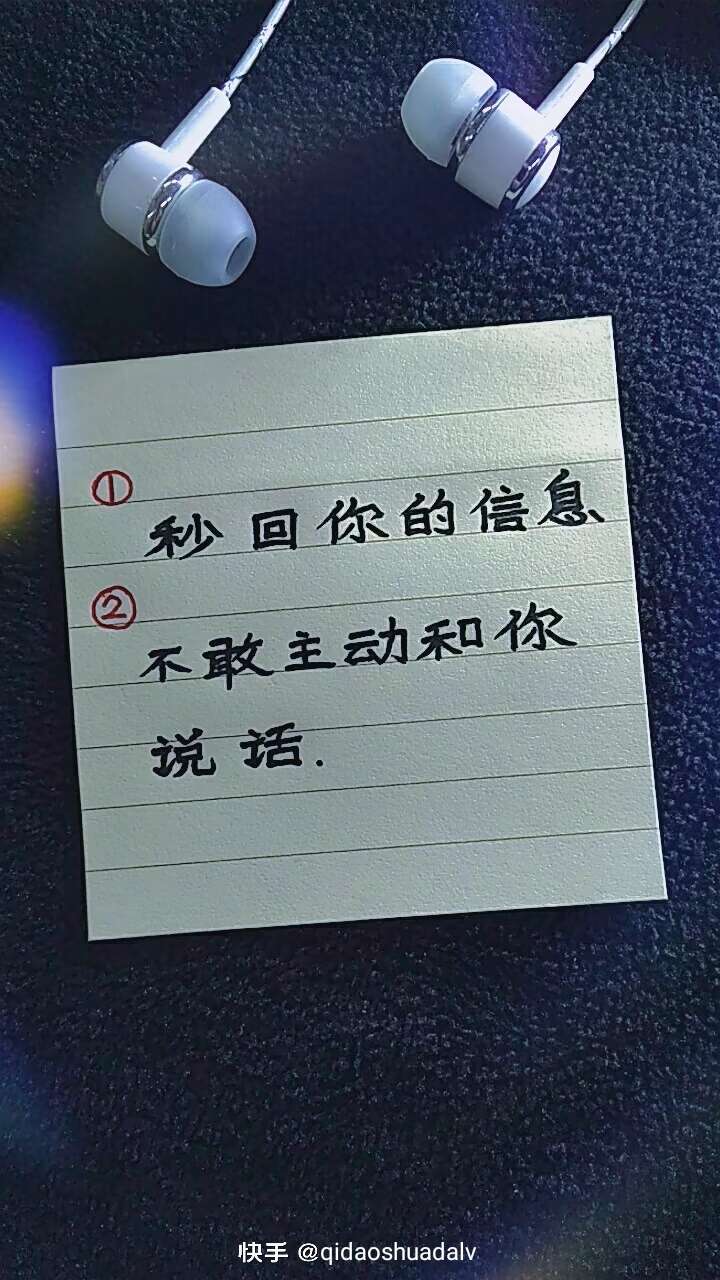 ①
秒回你的信息
②
不敢主动和你
说话.
快手 @qidaoshuadalv